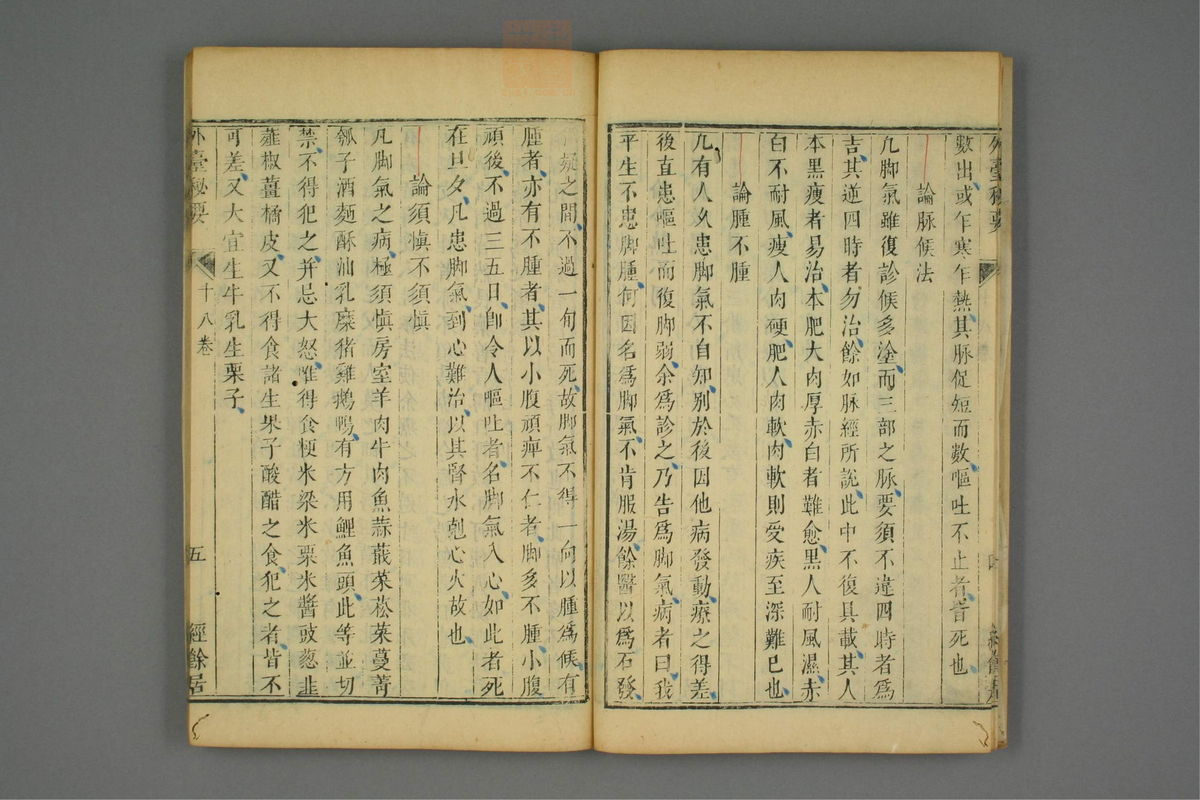 外臺秘要
數出或乍寒乍熱其脉促短而數嘔吐不止者皆死也
論脉候法
凡脚氣雖復診候多塗而三部之脉要須不違四時者爲
吉其逆四時者勿治餘如脉經所說此中不復具載其人
本黒瘦者易治本肥大肉厚赤白者難愈黒人耐風濕赤
白不耐風瘦人肉硬肥人肉軟肉軟則受疾至深難已也
論腫不腫
凡有人久患脚氣不自知别於後因他病發動療之得差
後直患嘔吐而復脚弱余爲診之乃告爲脚氣病者曰我
平生不患脚腫何因名爲脚氣不肯服湯餘醫以爲石發
疑之間不過一旬而死故脚氣不得一向以腫爲候有
腫者亦有不腫者其以小腹頑痺不仁者脚多不腫小腹
頑後不過三五日卽令人嘔吐者名脚氣入心如此者死
在旦夕凡患脚氣到心難治以其腎水剋心火故也
論須愼不須愼
凡脚氣之病極須愼房室羊肉牛肉魚蒜蕺菜菘菜蔓菁
瓠子酒麵酥油乳糜猪雞鵝鴨有方用鯉魚頭此等並切
禁不得犯之并忌大怒惟得食粳米粱米粟米醬豉葱韭
薤椒薑橘皮又不得食諸生果子酸醋之食犯之者皆不
可差又大宜生牛乳生栗子
外臺秘要 十八卷 五 經餘居